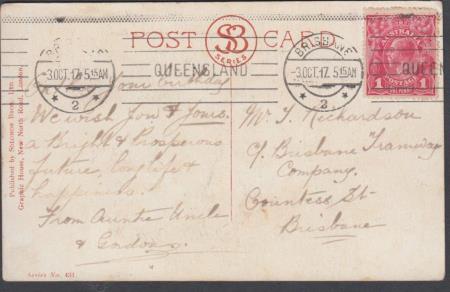 POST CARD
SB
SERIES
BRISBANE
3 OCT.17. 5.15AM
2
QUEENSLAND
BRISBANE
3 OCT.17. 5.15AM
2
QUEENSLAND
1
your birthday
We wish you & yours
a Bright & Prosperous
future, long life &
happiness.
From Auntie Uncle
&
Mr T. Richardson
C/ Brisbane Tramway
Company.
Countess St
Brisbane
Published by Solomon Bros., Ltd.
Graphic House, New North Road, London.
Series No. 431